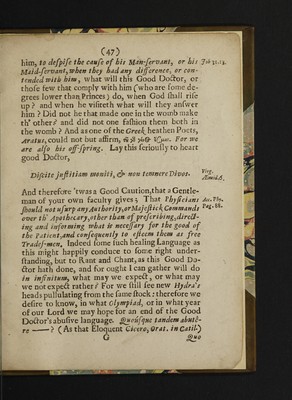 (47)
him, to despise the cause of his Man-servant, or his Job 31.13.
Maid-servant, when they had any difference, or con-
tended with him, what will this Good Doctor, or
those few that comply with him (who are some de-
grees lower than Princes) do, when God shall rise
up? and when he visiteth what will they answer
him? Did not he that made one in the womb make
th' other? and did not one fashion them both in
the womb? And as one of the Greek heathen Poets,
Aratus, could not but affirm, For we
are also his off-spring. Lay this seriously to heart
good Doctor,
Discite justitiam moniti, & non temnere Divos. Virg.
Æneid.6.
And therefore 'twas a Good Caution, that a Gentle-
man of your own faculty gives; That Physicians
should not usurp any Authority, or Majestick Commands
over th' Apothecary, other than of prescribing, direct-
ing and informing what is necessary for the good of
the Patient, and consequently to esteem them as free
Trades-men. Indeed some such healing Language as
this might happily conduce to some right under-
standing, but to Rant and Chant, as this Good Do-
ctor hath done, and for ought I can gather will do
in infinitum, what may we expect, or what may
we not expect rather? For we still see new Hydra's
heads pullulating from the same stock: therefore we
desire to know, in what Olympiad, or in what year
of our Lord we may hope for an end of the Good
Doctor's abusive language. Quousque tandem abuté-
re ——? (As that Eloquent Cicero, Orat. in Catil.)
G Quo